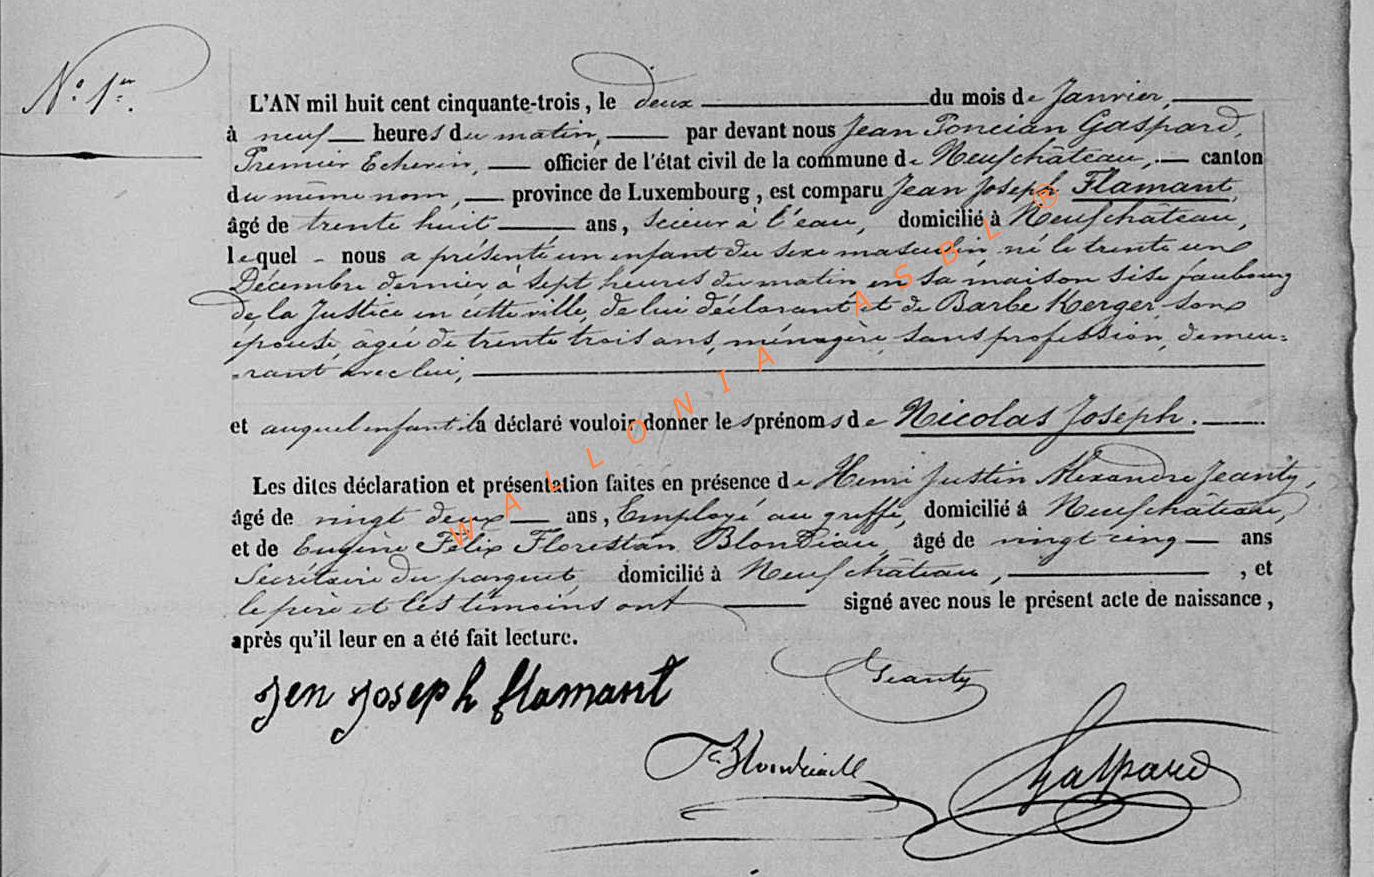 N.° 1.er
L'AN mil huit cent cinquante-trois, le deux du mois de Janvier,
à neuf heures du matin, par devant nous Jean Poncian Gaspard,
Premier Echevin, officier de l'état civil de la commune de Neufchâteau, canton
du même nom, province de Luxembourg, est comparu Jean Joseph Flamant,
âgé de trente huit ans, scieur à l'eau, domicilié à Neufchâteau,
lequel nous a présenté un enfant du sexe masculin, né le trente un
Décembre dernier à sept heures du matin en sa maison sise faubourg
de la Justice en cette ville, de lui déclarant et de Barbe Kerger son
épouse, âgée de trente trois ans, ménagère, sans profession, demeu=
rant avec lui,
et auquel enfant il a déclaré vouloir donner les prénoms de Nicolas Joseph.
Les dites déclaration et présentation faites en présence de Henri Justin Alexandre Jeanty,
âgé de vingt deux ans, Employé au greffe, domicilié à Neufchâteau,
et de Eugène Félix Florestan Blondiau, âgé de vingt cinq ans
Secrétaire du parquet, domicilié à Neufchâteau, , et
le père et les témoins ont signé avec nous le présent acte de naissance,
après qu'il leur en a été fait lecture.
Jen Joseph flamant
Jeanty
Gaspard
WALLONIA ASBL ®